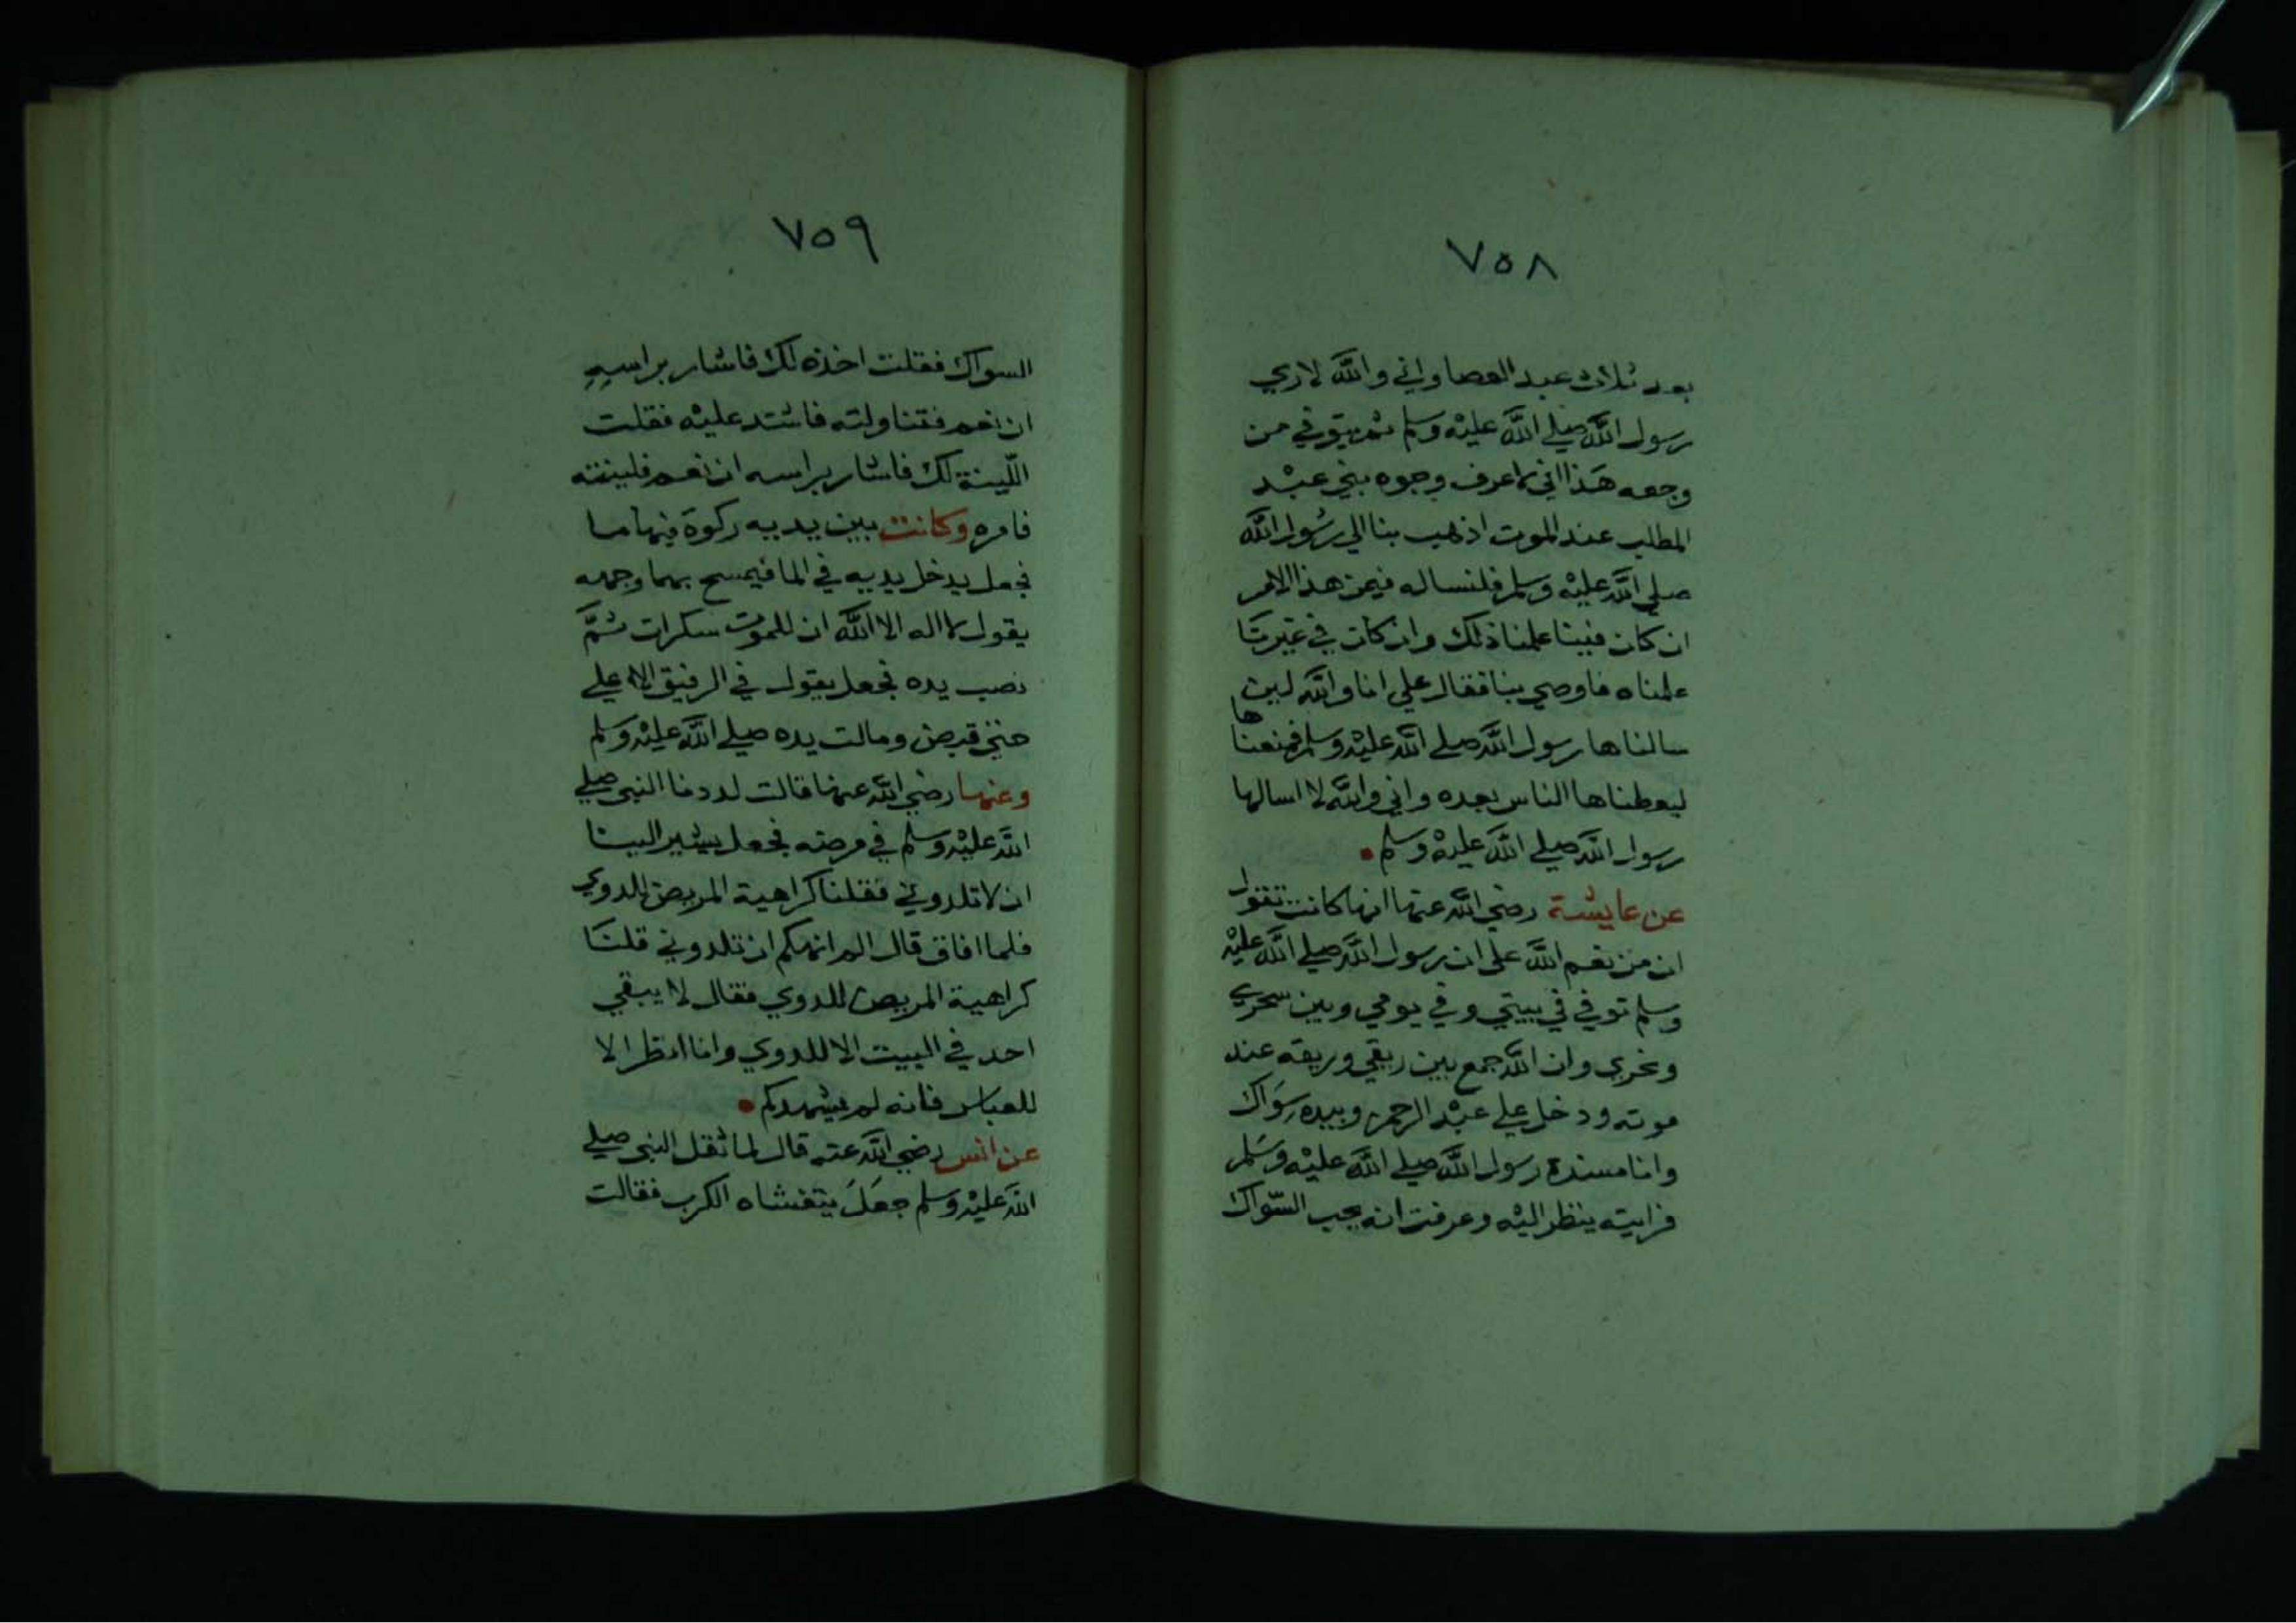 ٧٥٨
بعد ثلاث عبد العصا واني والله لاري
رسول الله صلي الله عليه وسلم ثم يتوفي من
وجعه هذا اني لاعرف وجوه بني عبد
المطلب عند الموت اذهب بنا الي رسول الله
صلي الله عليه وسلم فلنساله فيمن هذا الامر
ان كان فينا علمنا ذلك وان كان في غيرنا
علمناه فاوصي بنا فقال علي انا والله لين
سالناها رسول الله صلي الله عليه وسلم فمنعناها
ليعطناها الناس بعده واني والله لا اسالها
رسول الله صلي الله عليه وسلم
عن عايشة رضي الله عنها انها كانت تقول
ان من نعم الله علي ان رسول الله صلي الله عليه
وسلم توفي في بيتي وفي يومي وبين سحري
ونحري وان الله جمع بين ريقي وريقه عند
موته ودخل علي عبد الرحمن وبيده سواك
وانا مسندة رسول الله صلي الله عليه وسلم
فرايته ينظر اليه وعرفت انه يحب السواك
٧٥٩
السواك فقلت اخذه لك فاشار براسه
ان نعم فتناولته فاشتد عليه فقلت
اللينة لك فاشار براسه ان نعم فلينته
فامره وكانت بين يديه ركوة فيها ما
فجعل يدخل يديه في الما فيمسح بهما وجهه
يقول لا اله الا الله ان للموت سكرات ثم
نصب يده فجعل يقول في الرفيق الاعلي
حتي قبض ومالت يده صلي الله عليه وسلم
وعنها رضي الله عنها قالت لددنا النبي صلي
الله عليه وسلم في مرضه فجعل يشير الينا
ان لا تلدوني فقلنا كراهية المريض للدوي
فلما افاق قال الم انهكم ان تلدوني قلنا
كراهية المريض للدوي فقال لا يبقي
احد في البيت الا للدوي وانا انظر الا
للعباس فانه لم يشهدكم
عن انس رضي الله عنه قال لما ثقل النبي صلي
الله عليه وسلم جعل يتغشاه الكرب فقالت